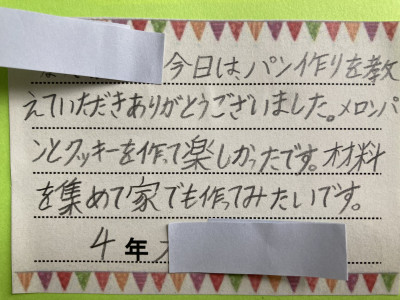 今日はパン作りを教
えていただきありがとうございました。メロンパ
ンとクッキーを作って楽しかったです。材料
を集めて家でも作ってみたいです。
4年